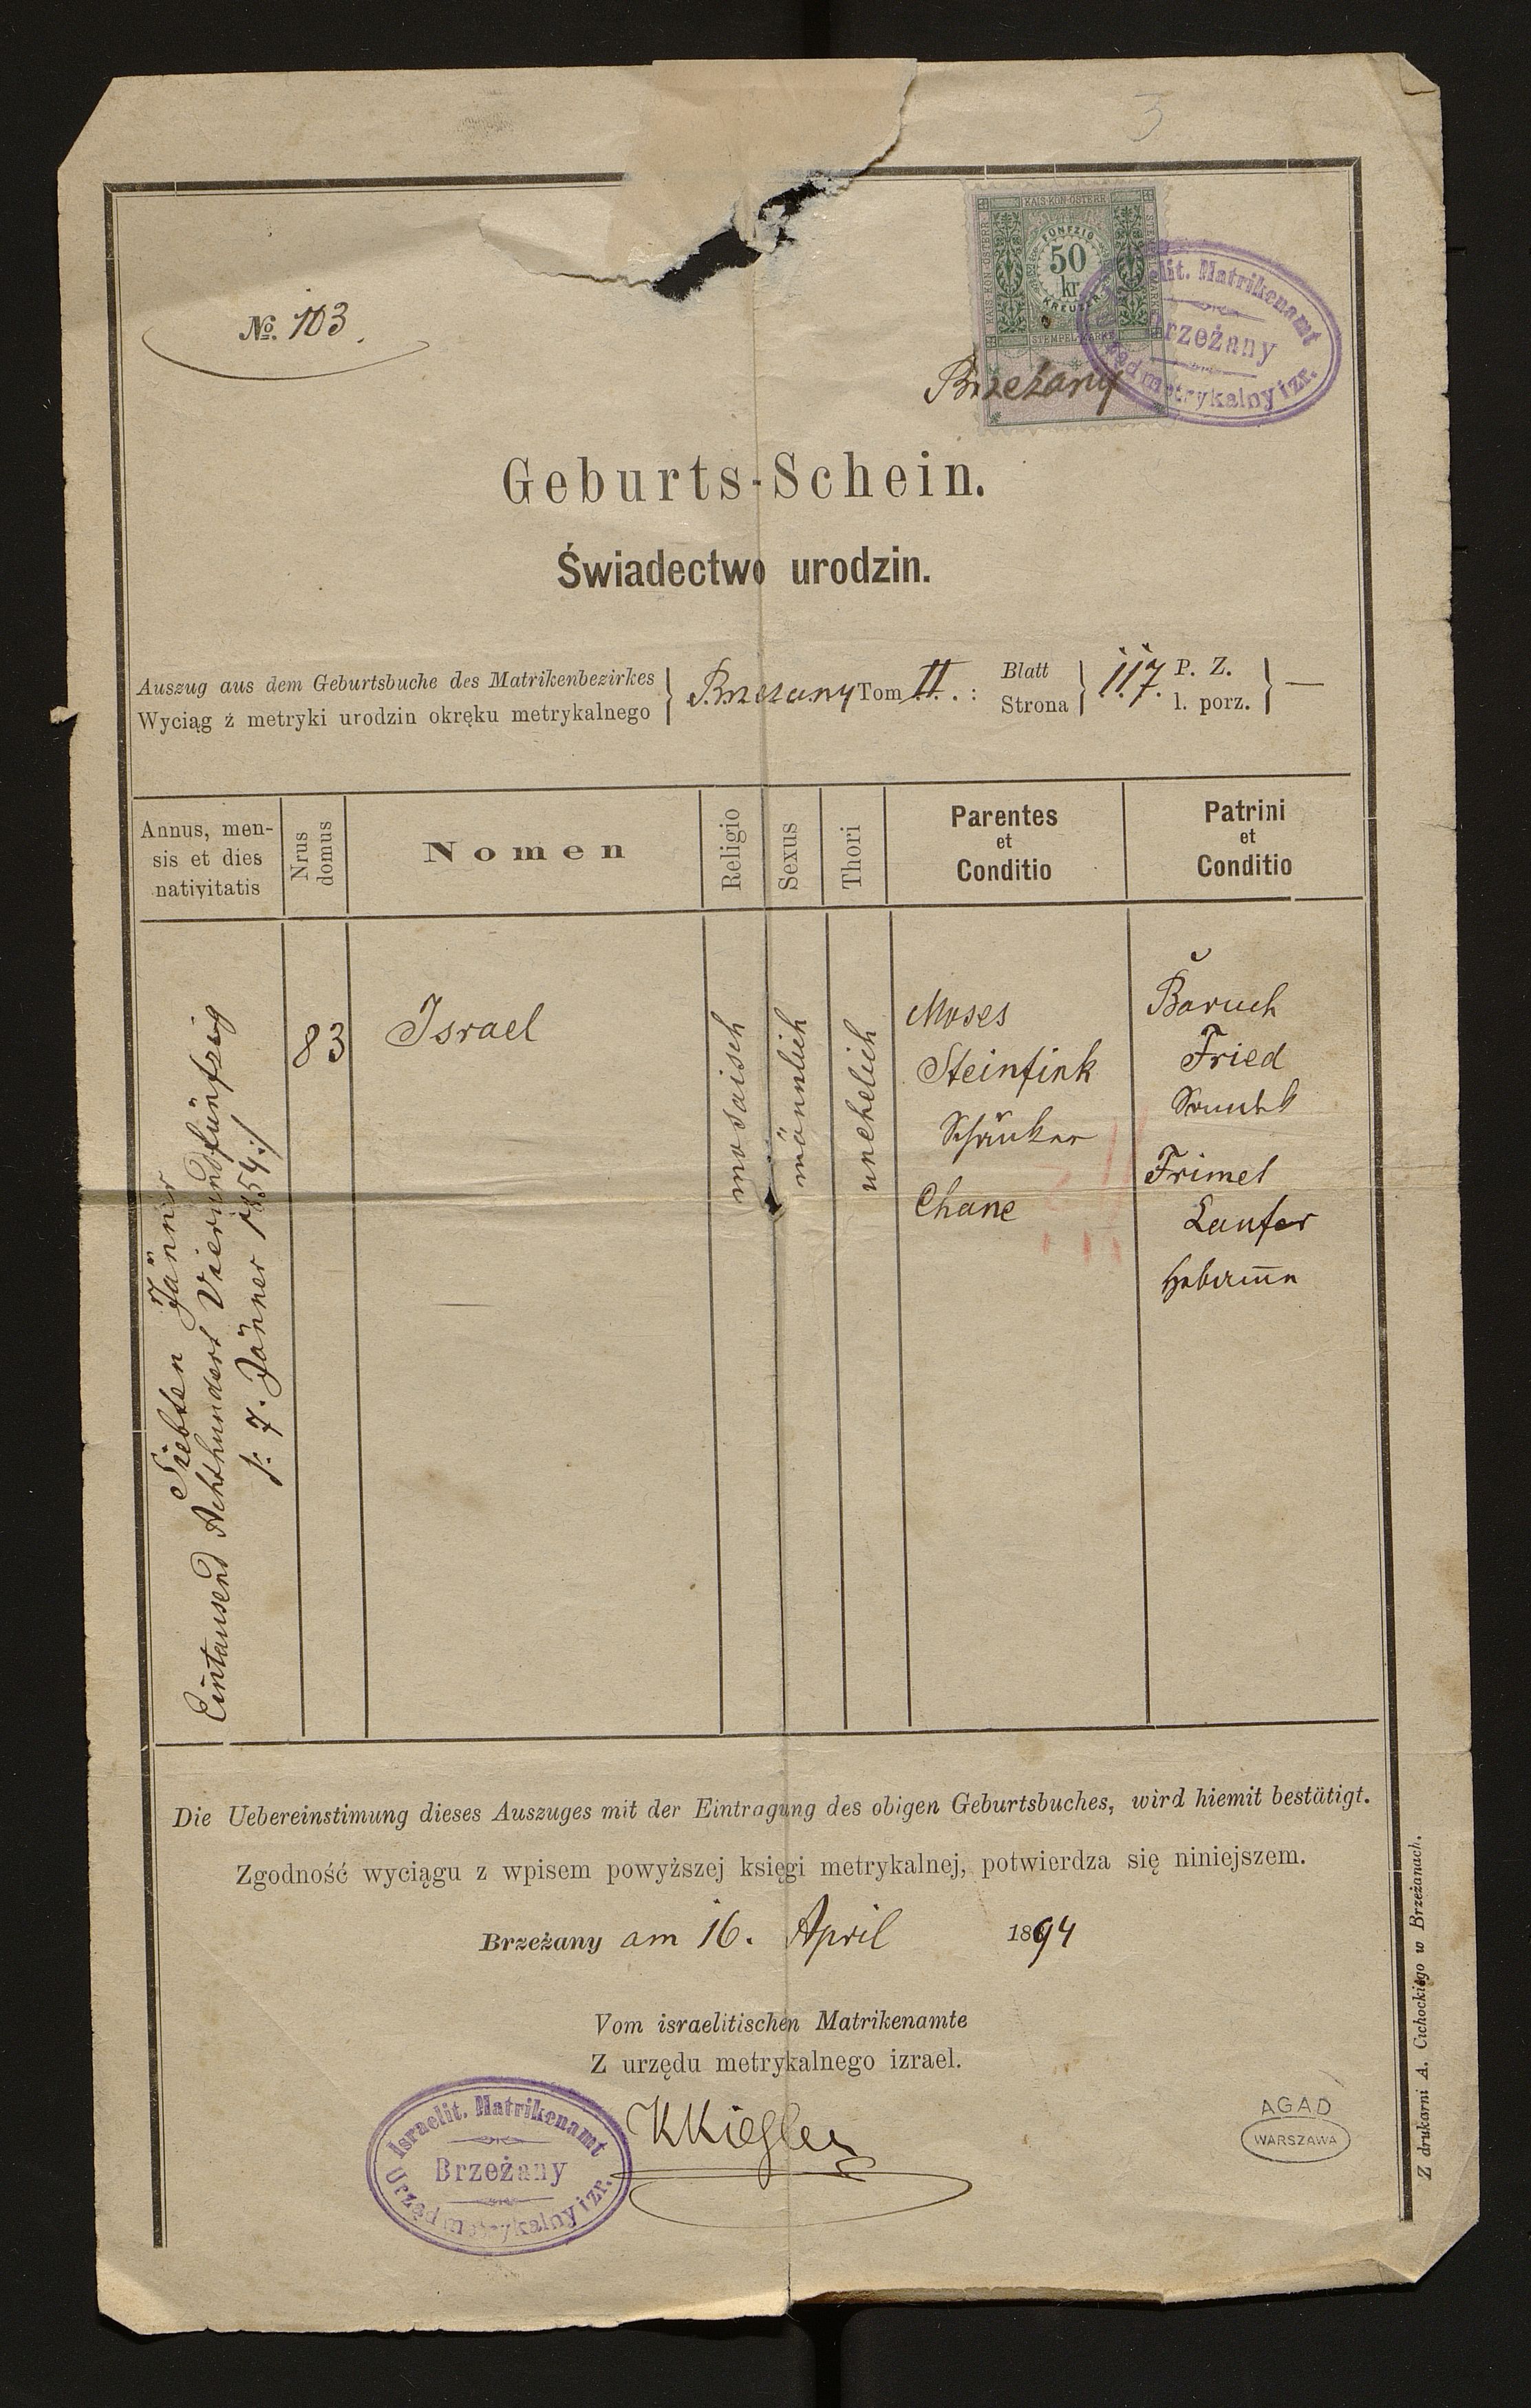 3
KAIS·KÖN·ÖSTERR·
FÜNFZIG
50
kr
KREUZER
STEMPEL-MARKE
Israelit. Matrikenamt
Brzeżany
Urząd metrykalny izr.
№. 103
Brzeżany
Geburts-Schein.
Świadectwo urodzin.
Auszug aus dem Geburtsbuche des Matrikenbezirkes
Wyciąg z metryki urodzin okręku metrykalnego
Brzezany Tom II. : Blatt Strona 117 P. Z. l. porz. —
Annus, men-
sis et dies
nativitatis
Nrus
domus
Nomen
Religio
Sexus
Thori
Parentes
et
Conditio
Patrini
et
Conditio
Siebten Jänner
Eintausend Achthundert Vierundfünfzig
/: 7. Jänner 1854 :/
83
Israel
mosaisch
männlich
unehelich
Moses
Steinfink
Schänker
Chane
Baruch
Fried
Frimet
Laufer
Die Uebereinstimung dieses Auszuges mit der Eintragung des obigen Geburtsbuches, wird hiemit bestätigt.
Zgodność wyciągu z wpisem powyższej księgi metrykalnej, potwierdza się niniejszem.
Brzeżany am 16. April 1894
Vom israelitischen Matrikenamte
Z urzędu metrykalnego izrael.
Israelit. Matrikenamt
Brzeżany
Urząd metrykalny izr.
KKiegler
AGAD
WARSZAWA
Z drukarni A. Cichockiego w Brzeżanach.